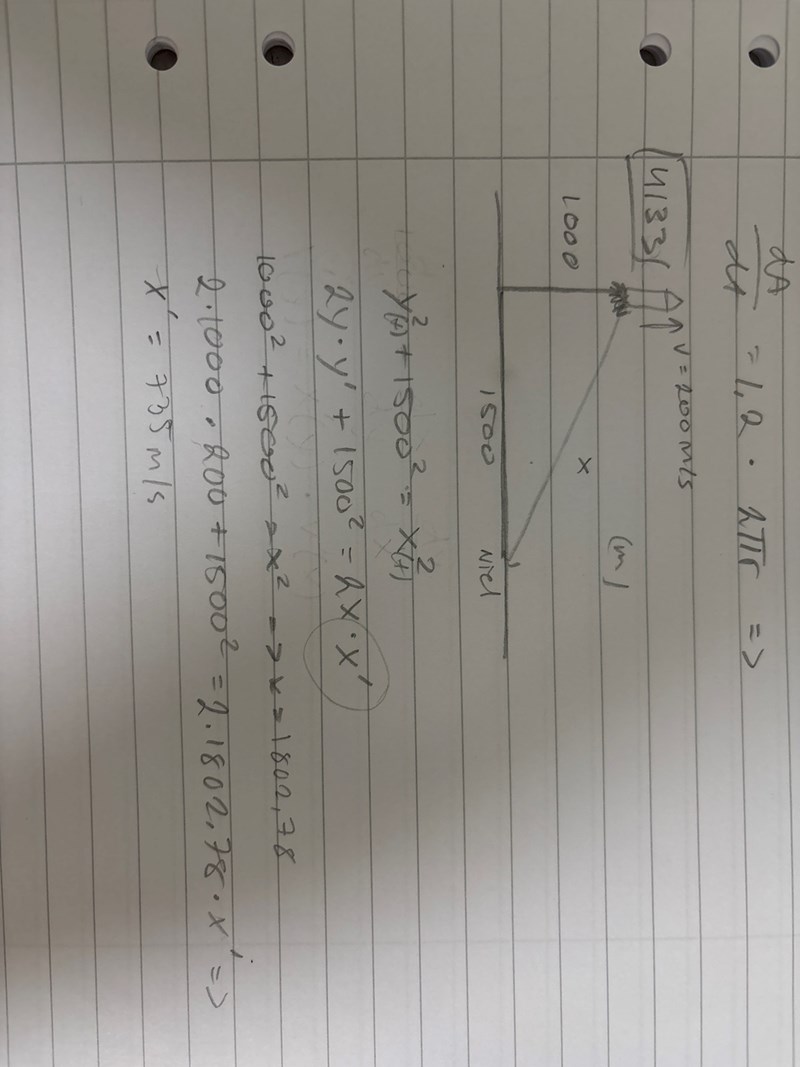 dA/dt = 1,2 · 2πr =>
4133
v = 200 m/s
(m)
1000
x
1500
Niel
y²(t) + 1500² = x²(t)
2y · y' + 1500² = 2x · x'
1000² + 1500² = x² => x = 1802,78
2 · 1000 · 200 + 1500² = 2 · 1802,78 · x' =>
x' = 735 m/s